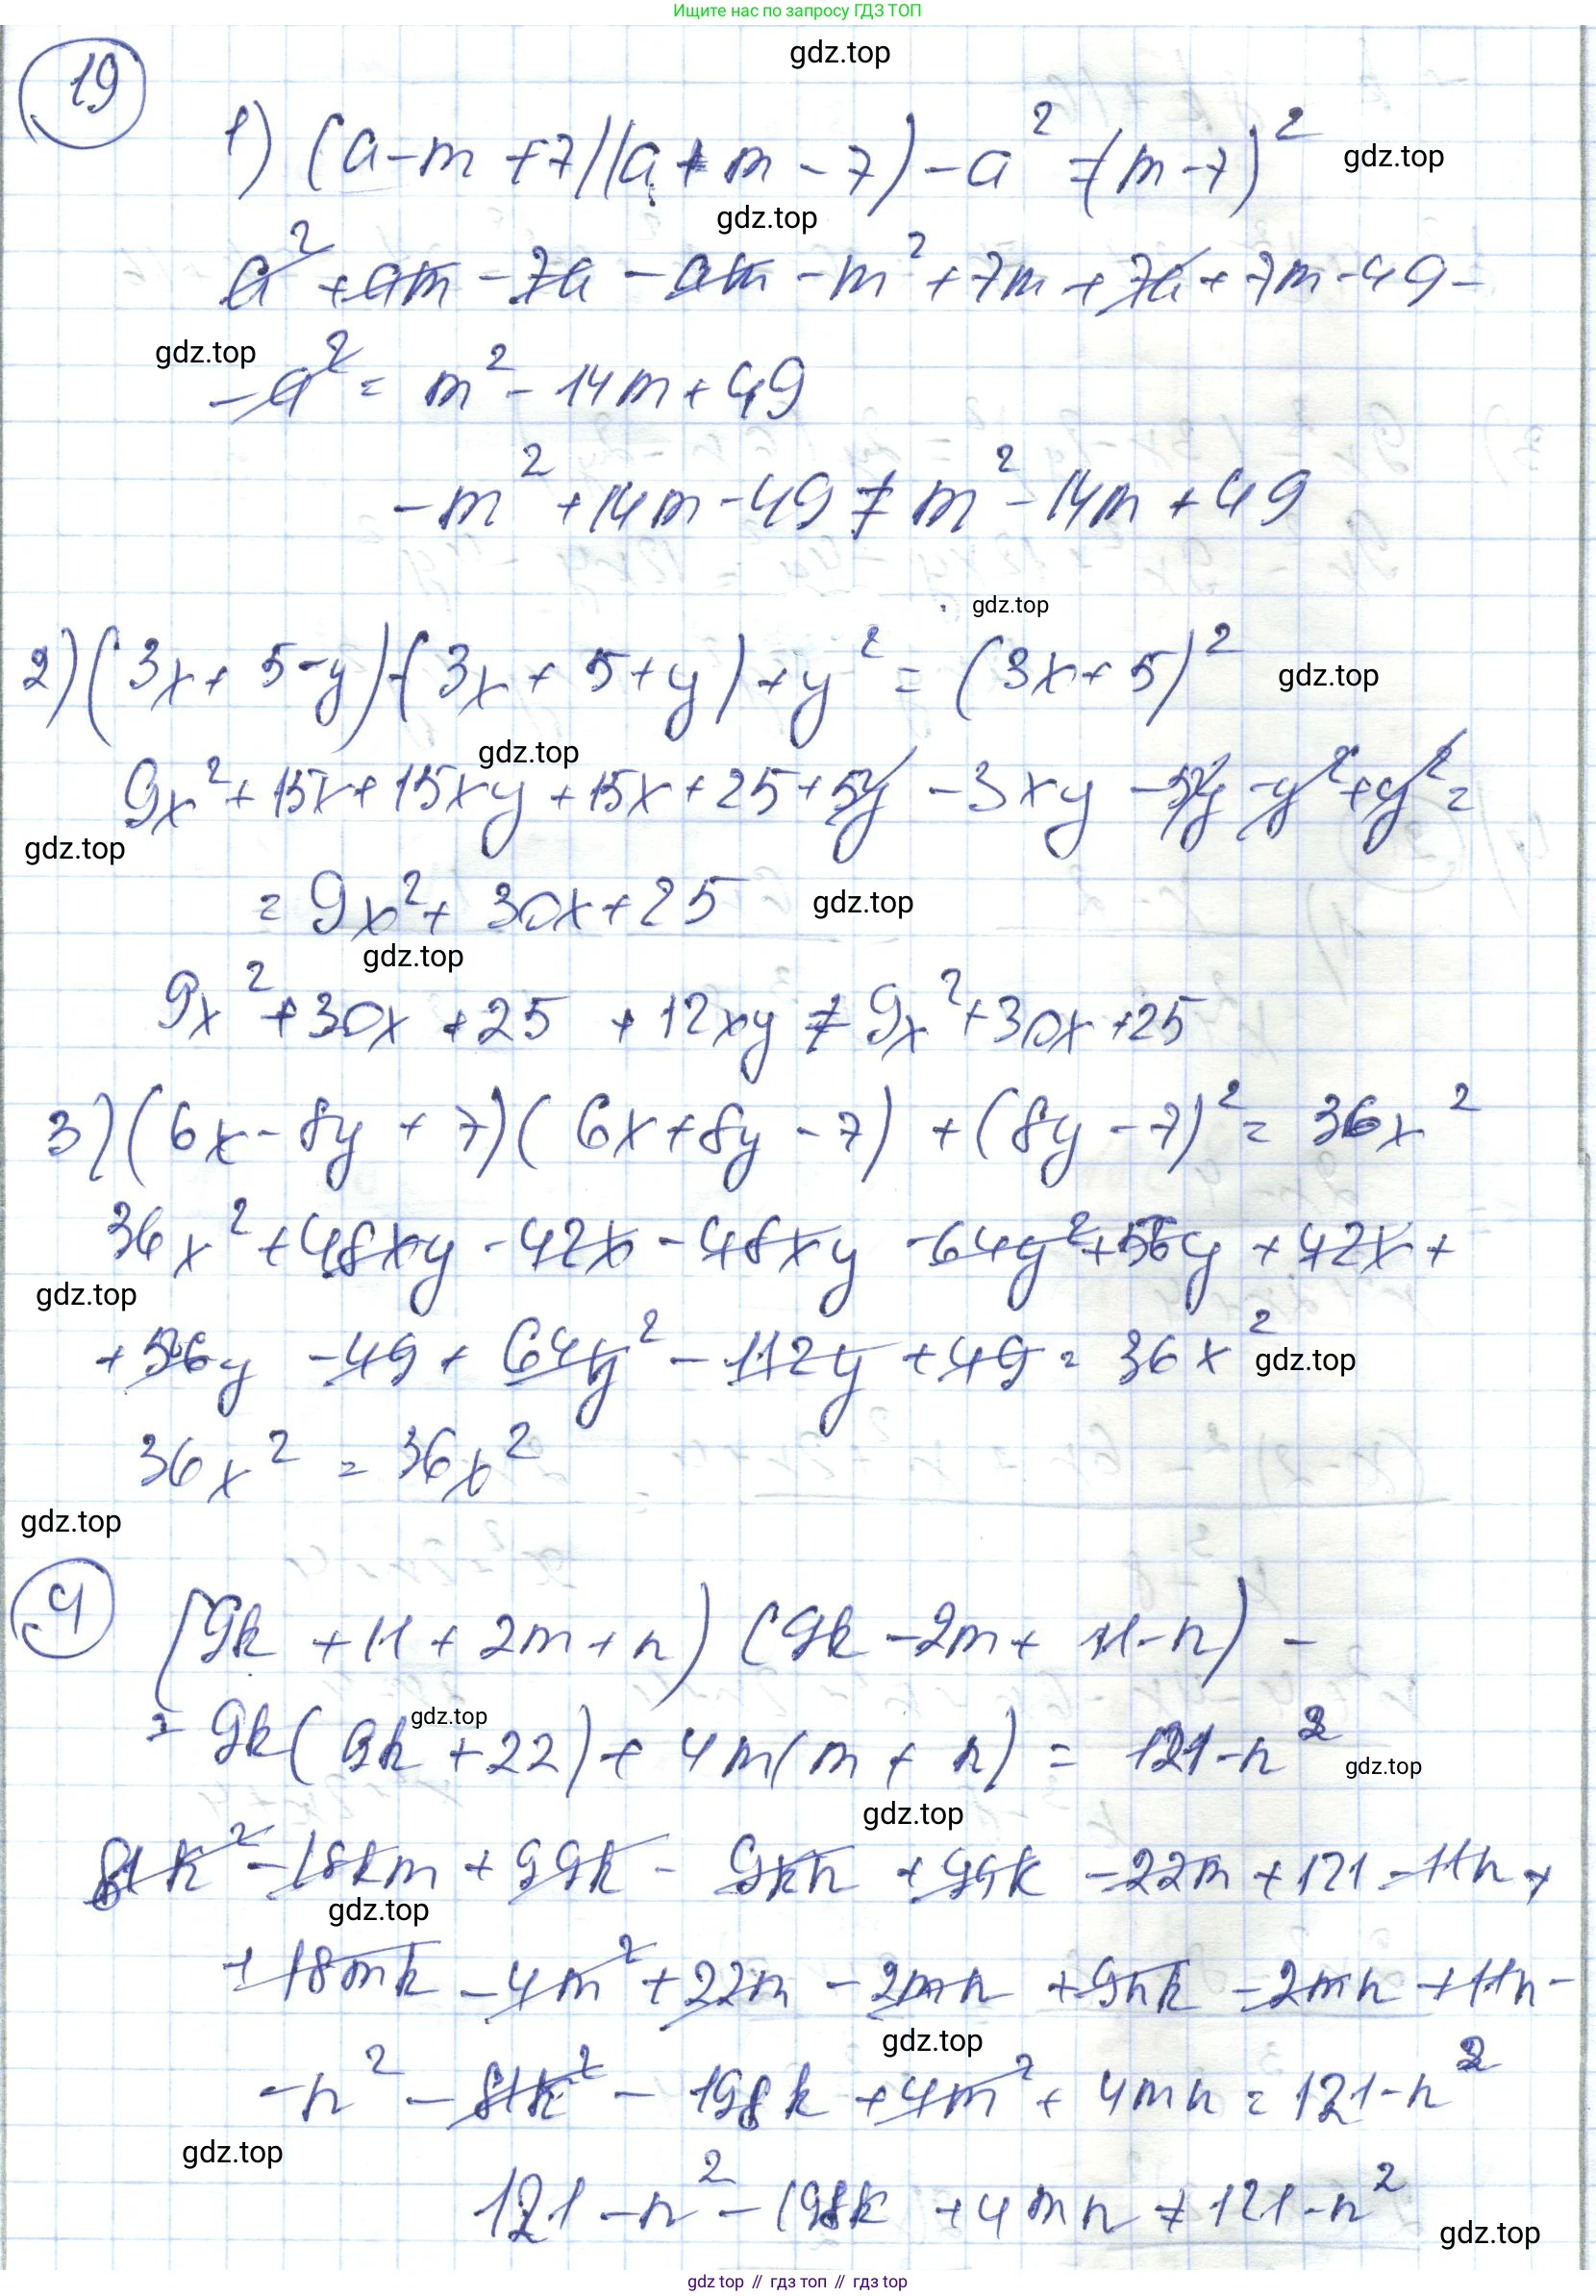 Ищите нас по запросу ГДЗ ТОП
gdz.top
19
1) (a - m + 7)(a + m - 7) - a² = (m - 7)²
gdz.top
gdz.top
a² + am - 7a - am - m² + 7m + 7a + 7m - 49 -
gdz.top
- a² = m² - 14m + 49
- m² + 14m - 49 ≠ m² - 14m + 49
gdz.top
2) (3x + 5 - y)·(3x + 5 + y) + y² = (3x + 5)²
gdz.top
gdz.top
9x² + 15x + 15xy + 15x + 25 + 5y - 3xy - 5y - y² + y² =
gdz.top
= 9x² + 30x + 25
gdz.top
gdz.top
9x² + 30x + 25 + 12xy ≠ 9x² + 30x + 25
3) (6x - 8y + 7)(6x + 8y - 7) + (8y - 7)² = 36x²
36x² + 48xy - 42x - 48xy - 64y² + 56y + 42x +
gdz.top
+ 56y - 49 + 64y² - 112y + 49 = 36x²
gdz.top
36x² = 36x²
gdz.top
4
(9k + 11 + 2m + n)(9k - 2m + 11 - n) -
gdz.top
- 9k(9k + 22) + 4m(m + n) = 121 - n²
gdz.top
gdz.top
81k² - 18km + 99k - 9kn + 99k - 22m + 121 - 11n +
gdz.top
+ 18mk - 4m² + 22m - 2mn + 9nk - 2mn + 11n -
gdz.top
- n² - 81k² - 198k + 4m² + 4mn = 121 - n²
gdz.top
121 - n² - 198k + 4mn ≠ 121 - n²
gdz.top
gdz top // гдз топ // гдз top